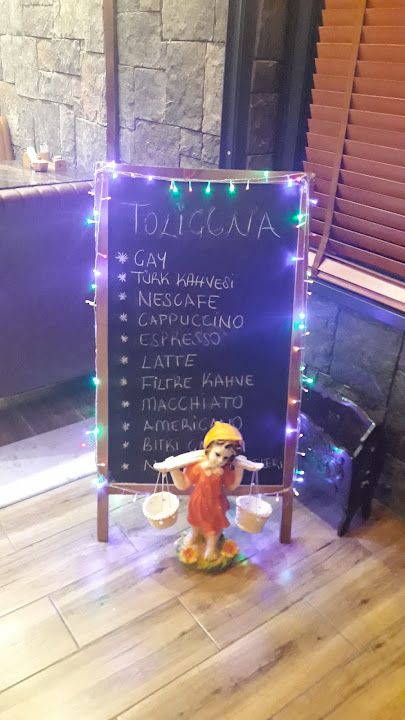 TOLIGGNA
* GAY
* TÜRK KAHVESİ
* NESCAFE
* CAPPUCCINO
* ESPRESSO
* LATTE
* FILTRE KAHVE
* MACCHIATO
* AMERICANO
* BITKI